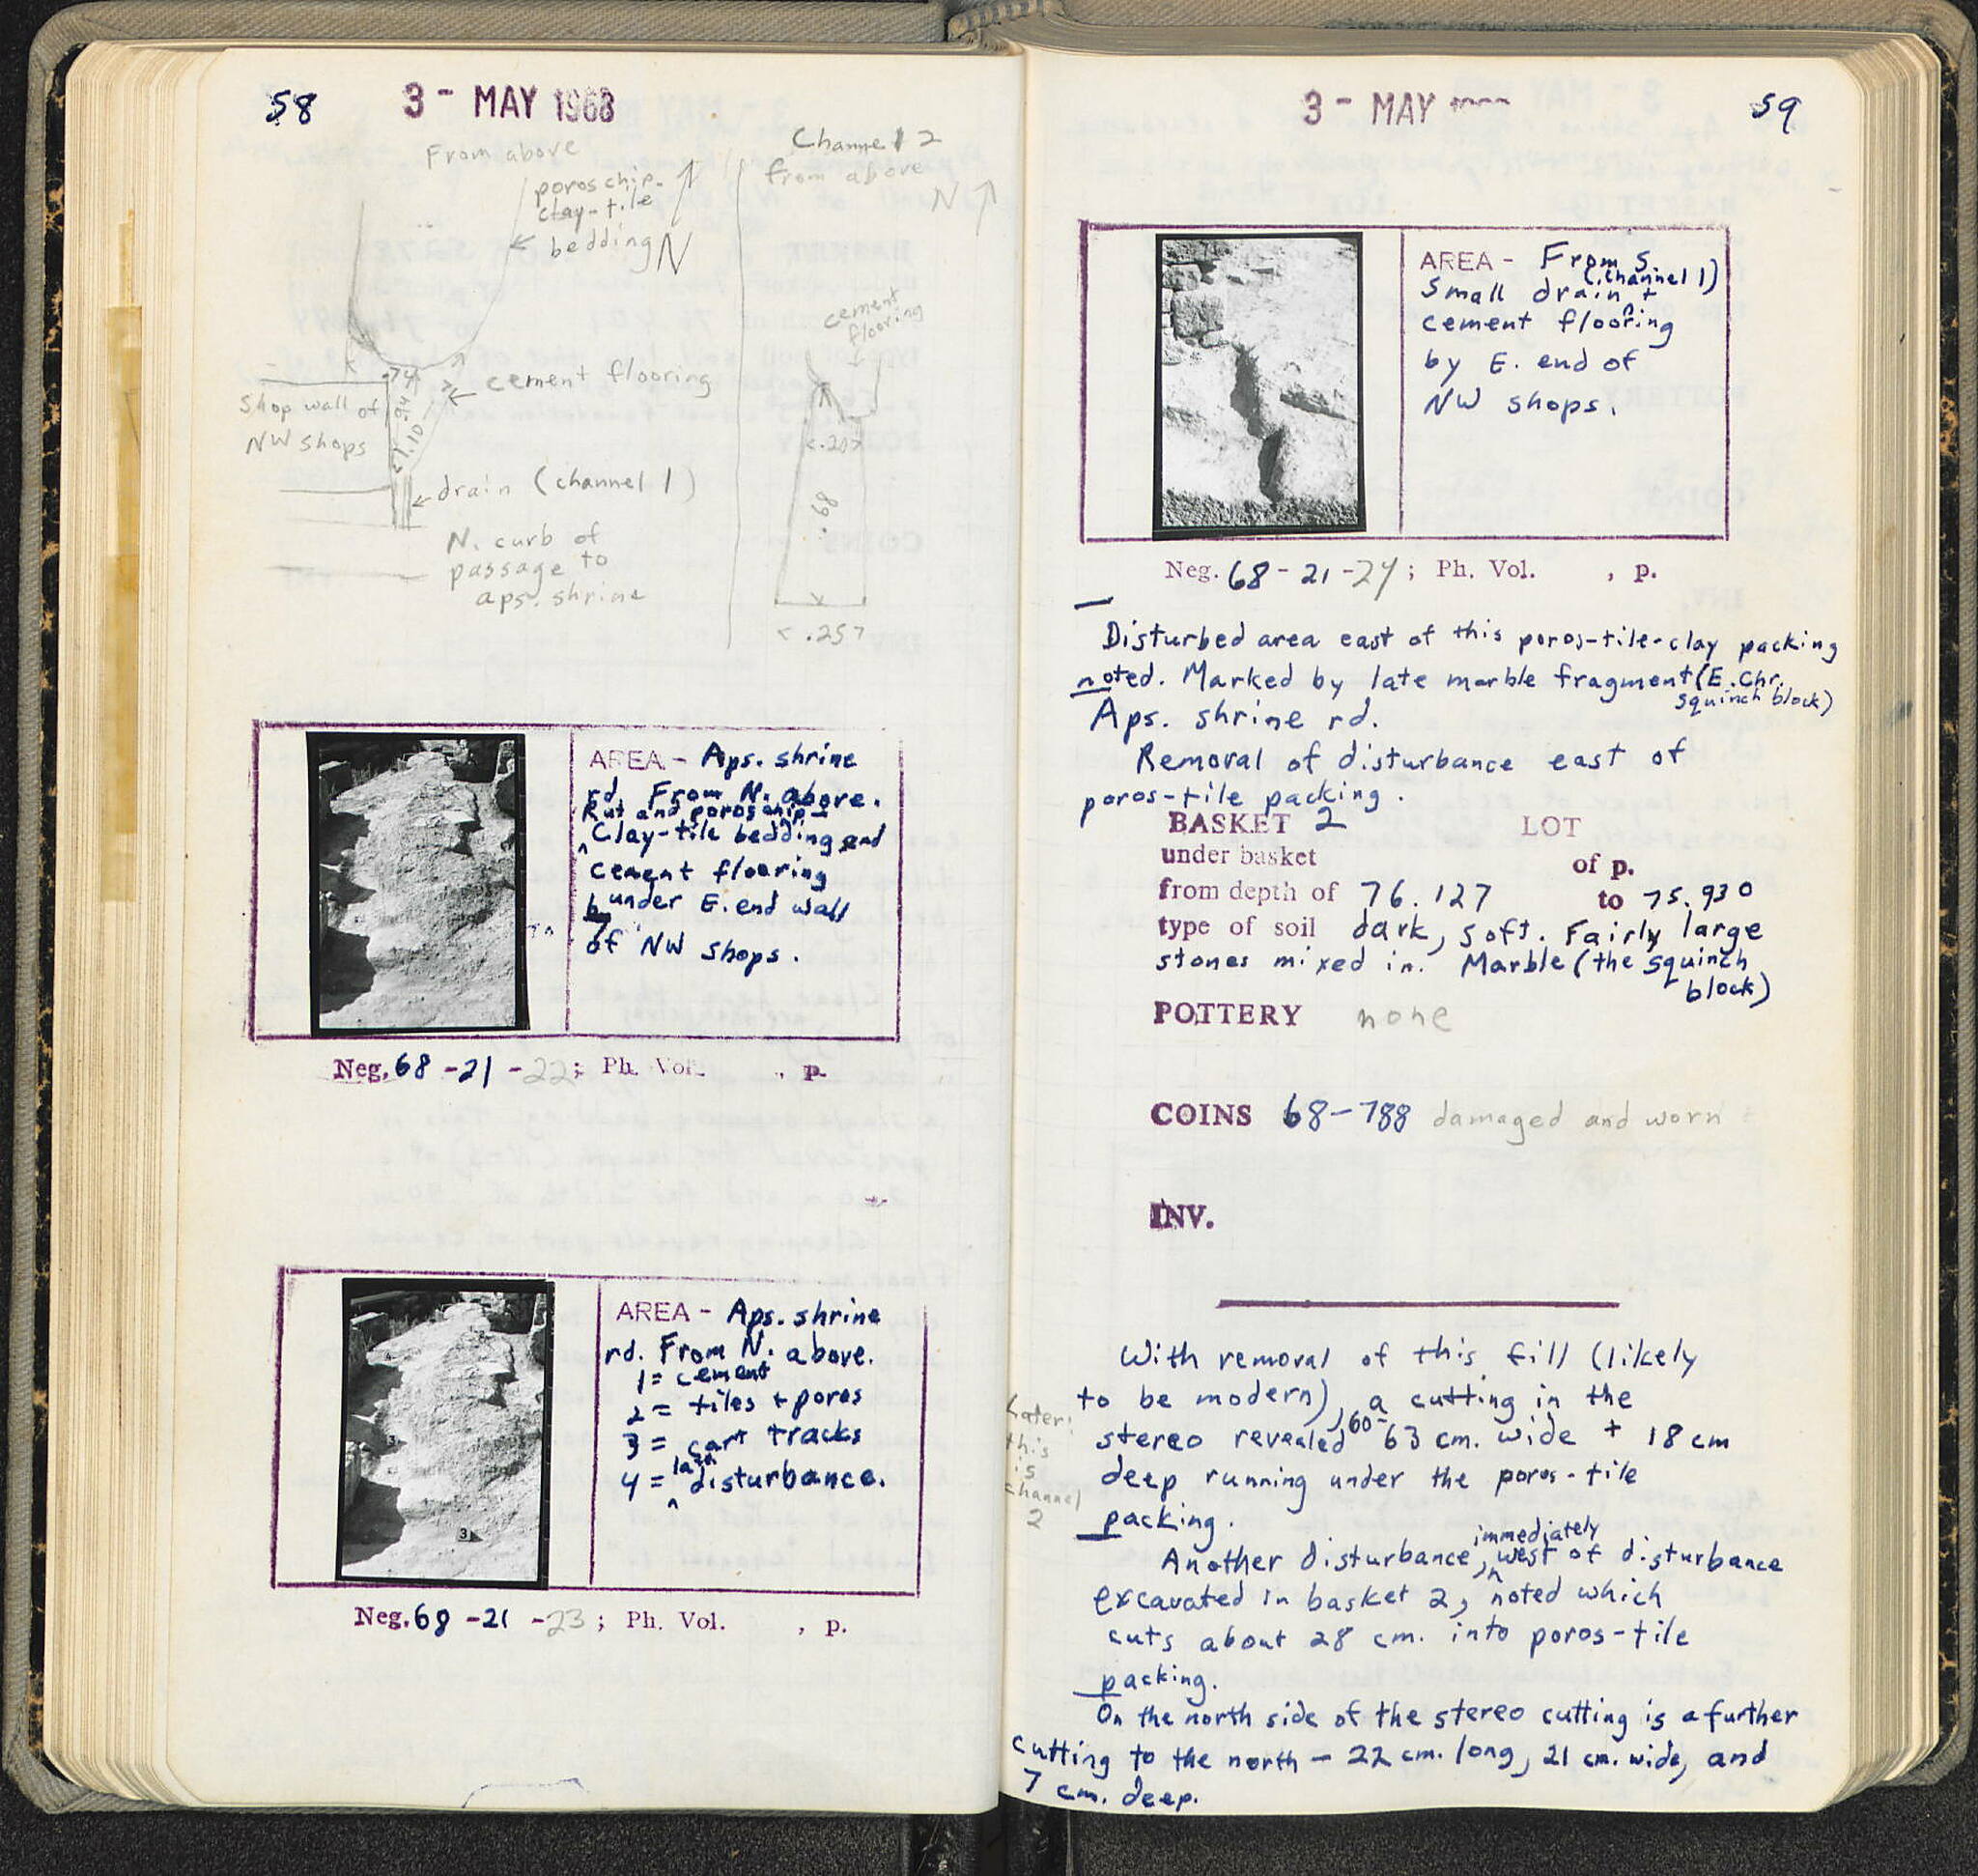 58
3 - MAY 1968
From above
poros chip-
clay-tile
bedding
N
Channel 2
from above
N
cement
flooring
.74
cement flooring
Shop wall of
NW shops
1.10
<.20>
.89
drain (channel 1)
N. curb of
passage to
aps. shrine
<.25>
AREA - Aps. shrine
rd. From N. above.
Rut and poros chip-
Clay-tile bedding and
cement flooring
by under E. end wall
of NW shops.
Neg. 68 - 21 - 22; Ph. Vol. , p.
AREA - Aps. shrine
rd. From N. above.
1 = cement
2 = tiles + poros
3 = cart tracks
4 = late disturbance.
3
3
Neg. 68 - 21 - 23; Ph. Vol. , p.
3 - MAY
59
AREA - From S.
(channel 1)
small drain +
cement flooring
by E. end of
NW shops.
Neg. 68 - 21 - 24; Ph. Vol. , p.
Disturbed area east of this poros-tile-clay packing
noted. Marked by late marble fragment (E. Chr.
squinch block)
Aps. shrine rd.
Removal of disturbance east of
poros-tile packing.
BASKET 2 LOT
under basket of p.
from depth of 76.127 to 75.930
type of soil dark, soft. Fairly large
stones mixed in. Marble (the squinch
block)
POTTERY none
COINS 68-788 damaged and worn
INV.
With removal of this fill (likely
to be modern), a cutting in the
stereo revealed 60-63 cm. wide + 18 cm
deep running under the poros-tile
packing.
Later:
this
is
channel
2
Another disturbance, immediately west of disturbance
excavated in basket 2, noted which
cuts about 28 cm. into poros-tile
packing.
On the north side of the stereo cutting is a further
cutting to the north - 22 cm. long, 21 cm. wide, and
7 cm. deep.